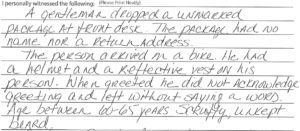 I personally witnessed the following: (Please Print Neatly)
A gentleman dropped a unmarked
package at front desk. The package had no
name nor a return address.
The person arrived in a bike. He had
a helmet and a reflective vest on his
person. When greeted he did not acknowledge
greeting and left without saying a word.
Age between 60-65 years scruffy, unkept
beard.